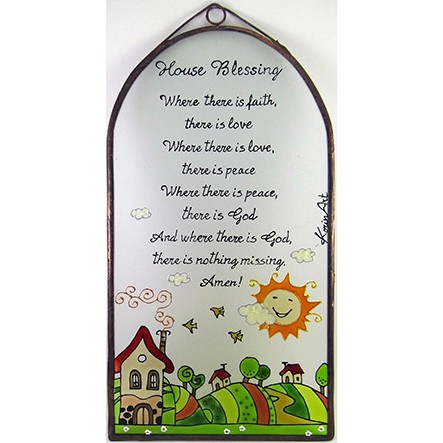 House Blessing
Where there is faith,
there is love
Where there is love,
there is peace
Where there is peace,
there is God
And where there is God,
there is nothing missing.
Amen!